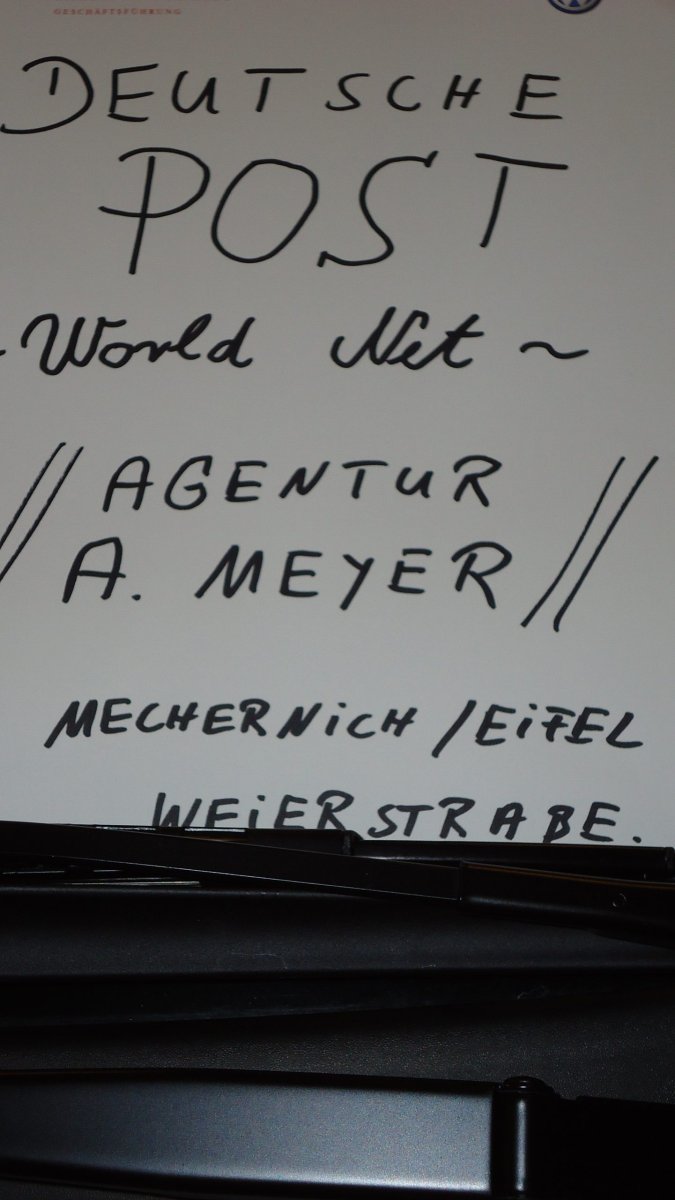 GESCHÄFTSFÜHRUNG
DEUTSCHE
POST
~ World Net ~
// AGENTUR //
A. MEYER
MECHERNiCH /EiFEL
WEiERSTRAßE.